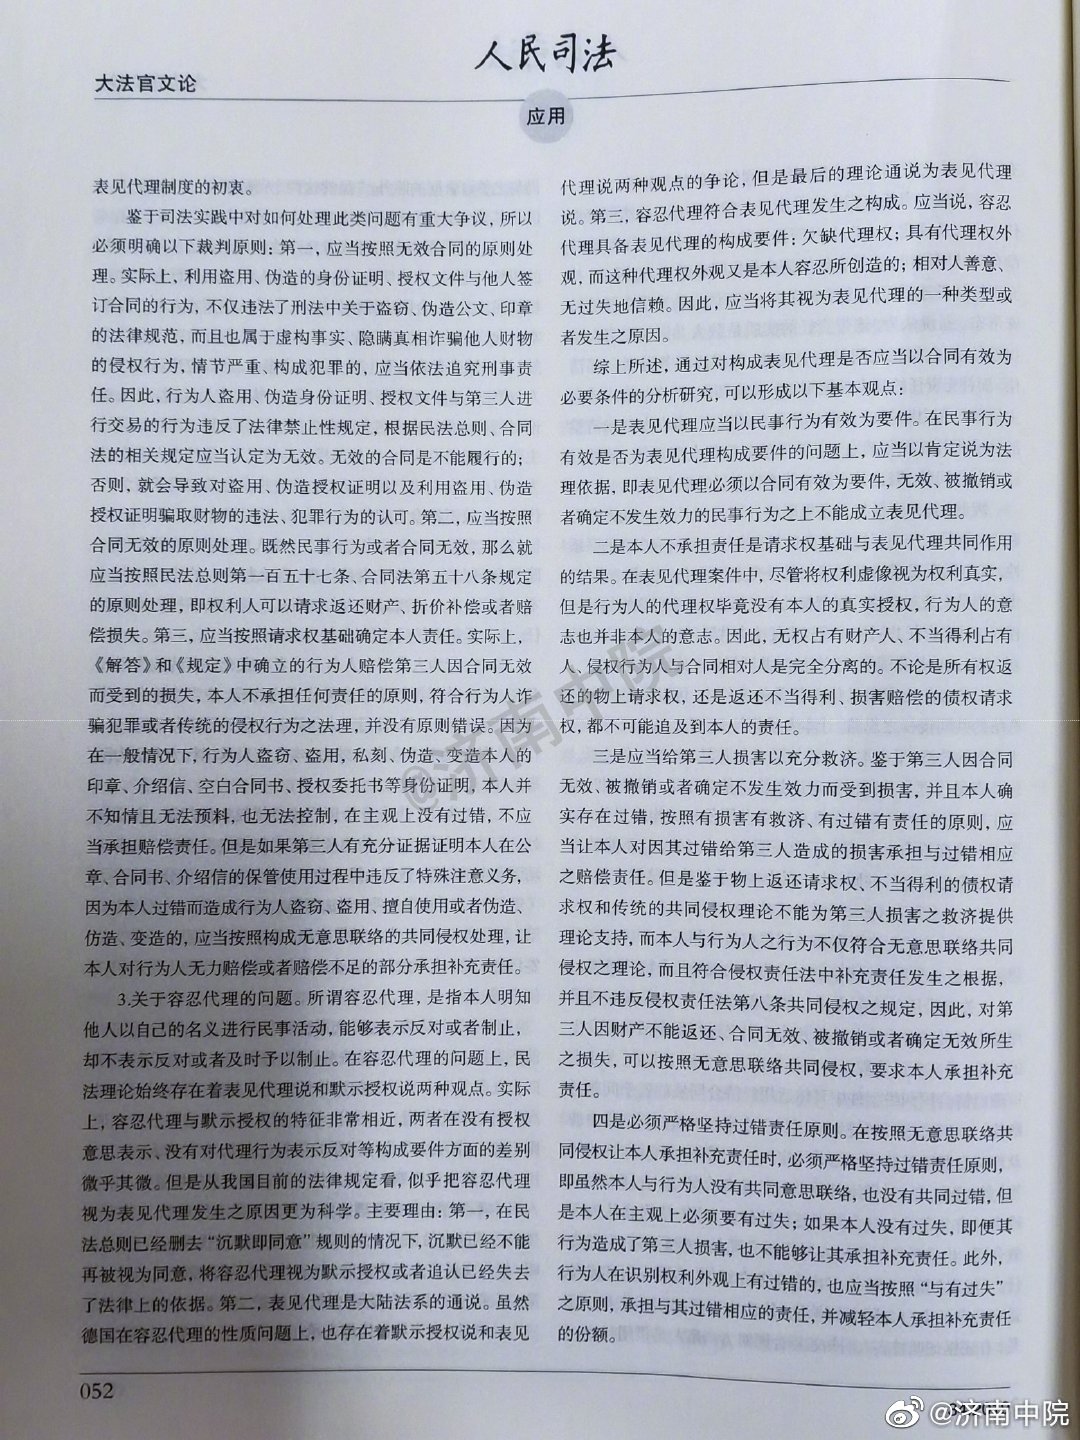 人民司法
大法官文论
应用
表见代理制度的初衷。
鉴于司法实践中对如何处理此类问题有重大争议，所以
必须明确以下裁判原则：第一，应当按照无效合同的原则处
理。实际上，利用盗用、伪造的身份证明、授权文件与他人签
订合同的行为，不仅违法了刑法中关于盗窃、伪造公文、印章
的法律规范，而且也属于虚构事实、隐瞒真相诈骗他人财物
的侵权行为，情节严重、构成犯罪的，应当依法追究刑事责
任。因此，行为人盗用、伪造身份证明、授权文件与第三人进
行交易的行为违反了法律禁止性规定，根据民法总则、合同
法的相关规定应当认定为无效。无效的合同是不能履行的；
否则，就会导致对盗用、伪造授权证明以及利用盗用、伪造
授权证明骗取财物的违法、犯罪行为的认可。第二，应当按照
合同无效的原则处理。既然民事行为或者合同无效，那么就
应当按照民法总则第一百五十七条、合同法第五十八条规定
的原则处理，即权利人可以请求返还财产、折价补偿或者赔
偿损失。第三，应当按照请求权基础确定本人责任。实际上，
《解答》和《规定》中确立的行为人赔偿第三人因合同无效
而受到的损失，本人不承担任何责任的原则，符合行为人诈
骗犯罪或者传统的侵权行为之法理，并没有原则错误。因为
在一般情况下，行为人盗窃、盗用，私刻、伪造、变造本人的
印章、介绍信、空白合同书、授权委托书等身份证明，本人并
不知情且无法预料，也无法控制，在主观上没有过错，不应
当承担赔偿责任。但是如果第三人有充分证据证明本人在公
章、合同书、介绍信的保管使用过程中违反了特殊注意义务，
因为本人过错而造成行为人盗窃、盗用、擅自使用或者伪造、
仿造、变造的，应当按照构成无意思联络的共同侵权处理，让
本人对行为人无力赔偿或者赔偿不足的部分承担补充责任。
3.关于容忍代理的问题。所谓容忍代理，是指本人明知
他人以自己的名义进行民事活动，能够表示反对或者制止，
却不表示反对或者及时予以制止。在容忍代理的问题上，民
法理论始终存在着表见代理说和默示授权说两种观点。实际
上，容忍代理与默示授权的特征非常相近，两者在没有授权
意思表示、没有对代理行为表示反对等构成要件方面的差别
微乎其微。但是从我国目前的法律规定看，似乎把容忍代理
视为表见代理发生之原因更为科学。主要理由：第一，在民
法总则已经删去“沉默即同意”规则的情况下，沉默已经不能
再被视为同意，将容忍代理视为默示授权或者追认已经失去
了法律上的依据。第二，表见代理是大陆法系的通说。虽然
德国在容忍代理的性质问题上，也存在着默示授权说和表见
代理说两种观点的争论，但是最后的理论通说为表见代理
说。第三，容忍代理符合表见代理发生之构成。应当说，容忍
代理具备表见代理的构成要件：欠缺代理权；具有代理权外
观，而这种代理权外观又是本人容忍所创造的；相对人善意、
无过失地信赖。因此，应当将其视为表见代理的一种类型或
者发生之原因。
综上所述，通过对构成表见代理是否应当以合同有效为
必要条件的分析研究，可以形成以下基本观点：
一是表见代理应当以民事行为有效为要件。在民事行为
有效是否为表见代理构成要件的问题上，应当以肯定说为法
理依据，即表见代理必须以合同有效为要件，无效、被撤销或
者确定不发生效力的民事行为之上不能成立表见代理。
二是本人不承担责任是请求权基础与表见代理共同作用
的结果。在表见代理案件中，尽管将权利虚像视为权利真实，
但是行为人的代理权毕竟没有本人的真实授权，行为人的意
志也并非本人的意志。因此，无权占有财产人、不当得利占有
人、侵权行为人与合同相对人是完全分离的。不论是所有权返
还的物上请求权，还是返还不当得利、损害赔偿的债权请求
权，都不可能追及到本人的责任。
三是应当给第三人损害以充分救济。鉴于第三人因合同
无效、被撤销或者确定不发生效力而受到损害，并且本人确
实存在过错，按照有损害有救济、有过错有责任的原则，应
当让本人对因其过错给第三人造成的损害承担与过错相应
之赔偿责任。但是鉴于物上返还请求权、不当得利的债权请
求权和传统的共同侵权理论不能为第三人损害之救济提供
理论支持，而本人与行为人之行为不仅符合无意思联络共同
侵权之理论，而且符合侵权责任法中补充责任发生之根据，
并且不违反侵权责任法第八条共同侵权之规定，因此，对第
三人因财产不能返还、合同无效、被撤销或者确定无效所生
之损失，可以按照无意思联络共同侵权，要求本人承担补充
责任。
四是必须严格坚持过错责任原则。在按照无意思联络共
同侵权让本人承担补充责任时，必须严格坚持过错责任原则，
即虽然本人与行为人没有共同意思联络，也没有共同过错，但
是本人在主观上必须要有过失；如果本人没有过失，即便其
行为造成了第三人损害，也不能够让其承担补充责任。此外，
行为人在识别权利外观上有过错的，也应当按照“与有过失”
之原则，承担与其过错相应的责任，并减轻本人承担补充责任
的份额。
052
@济南中院
@济南中院